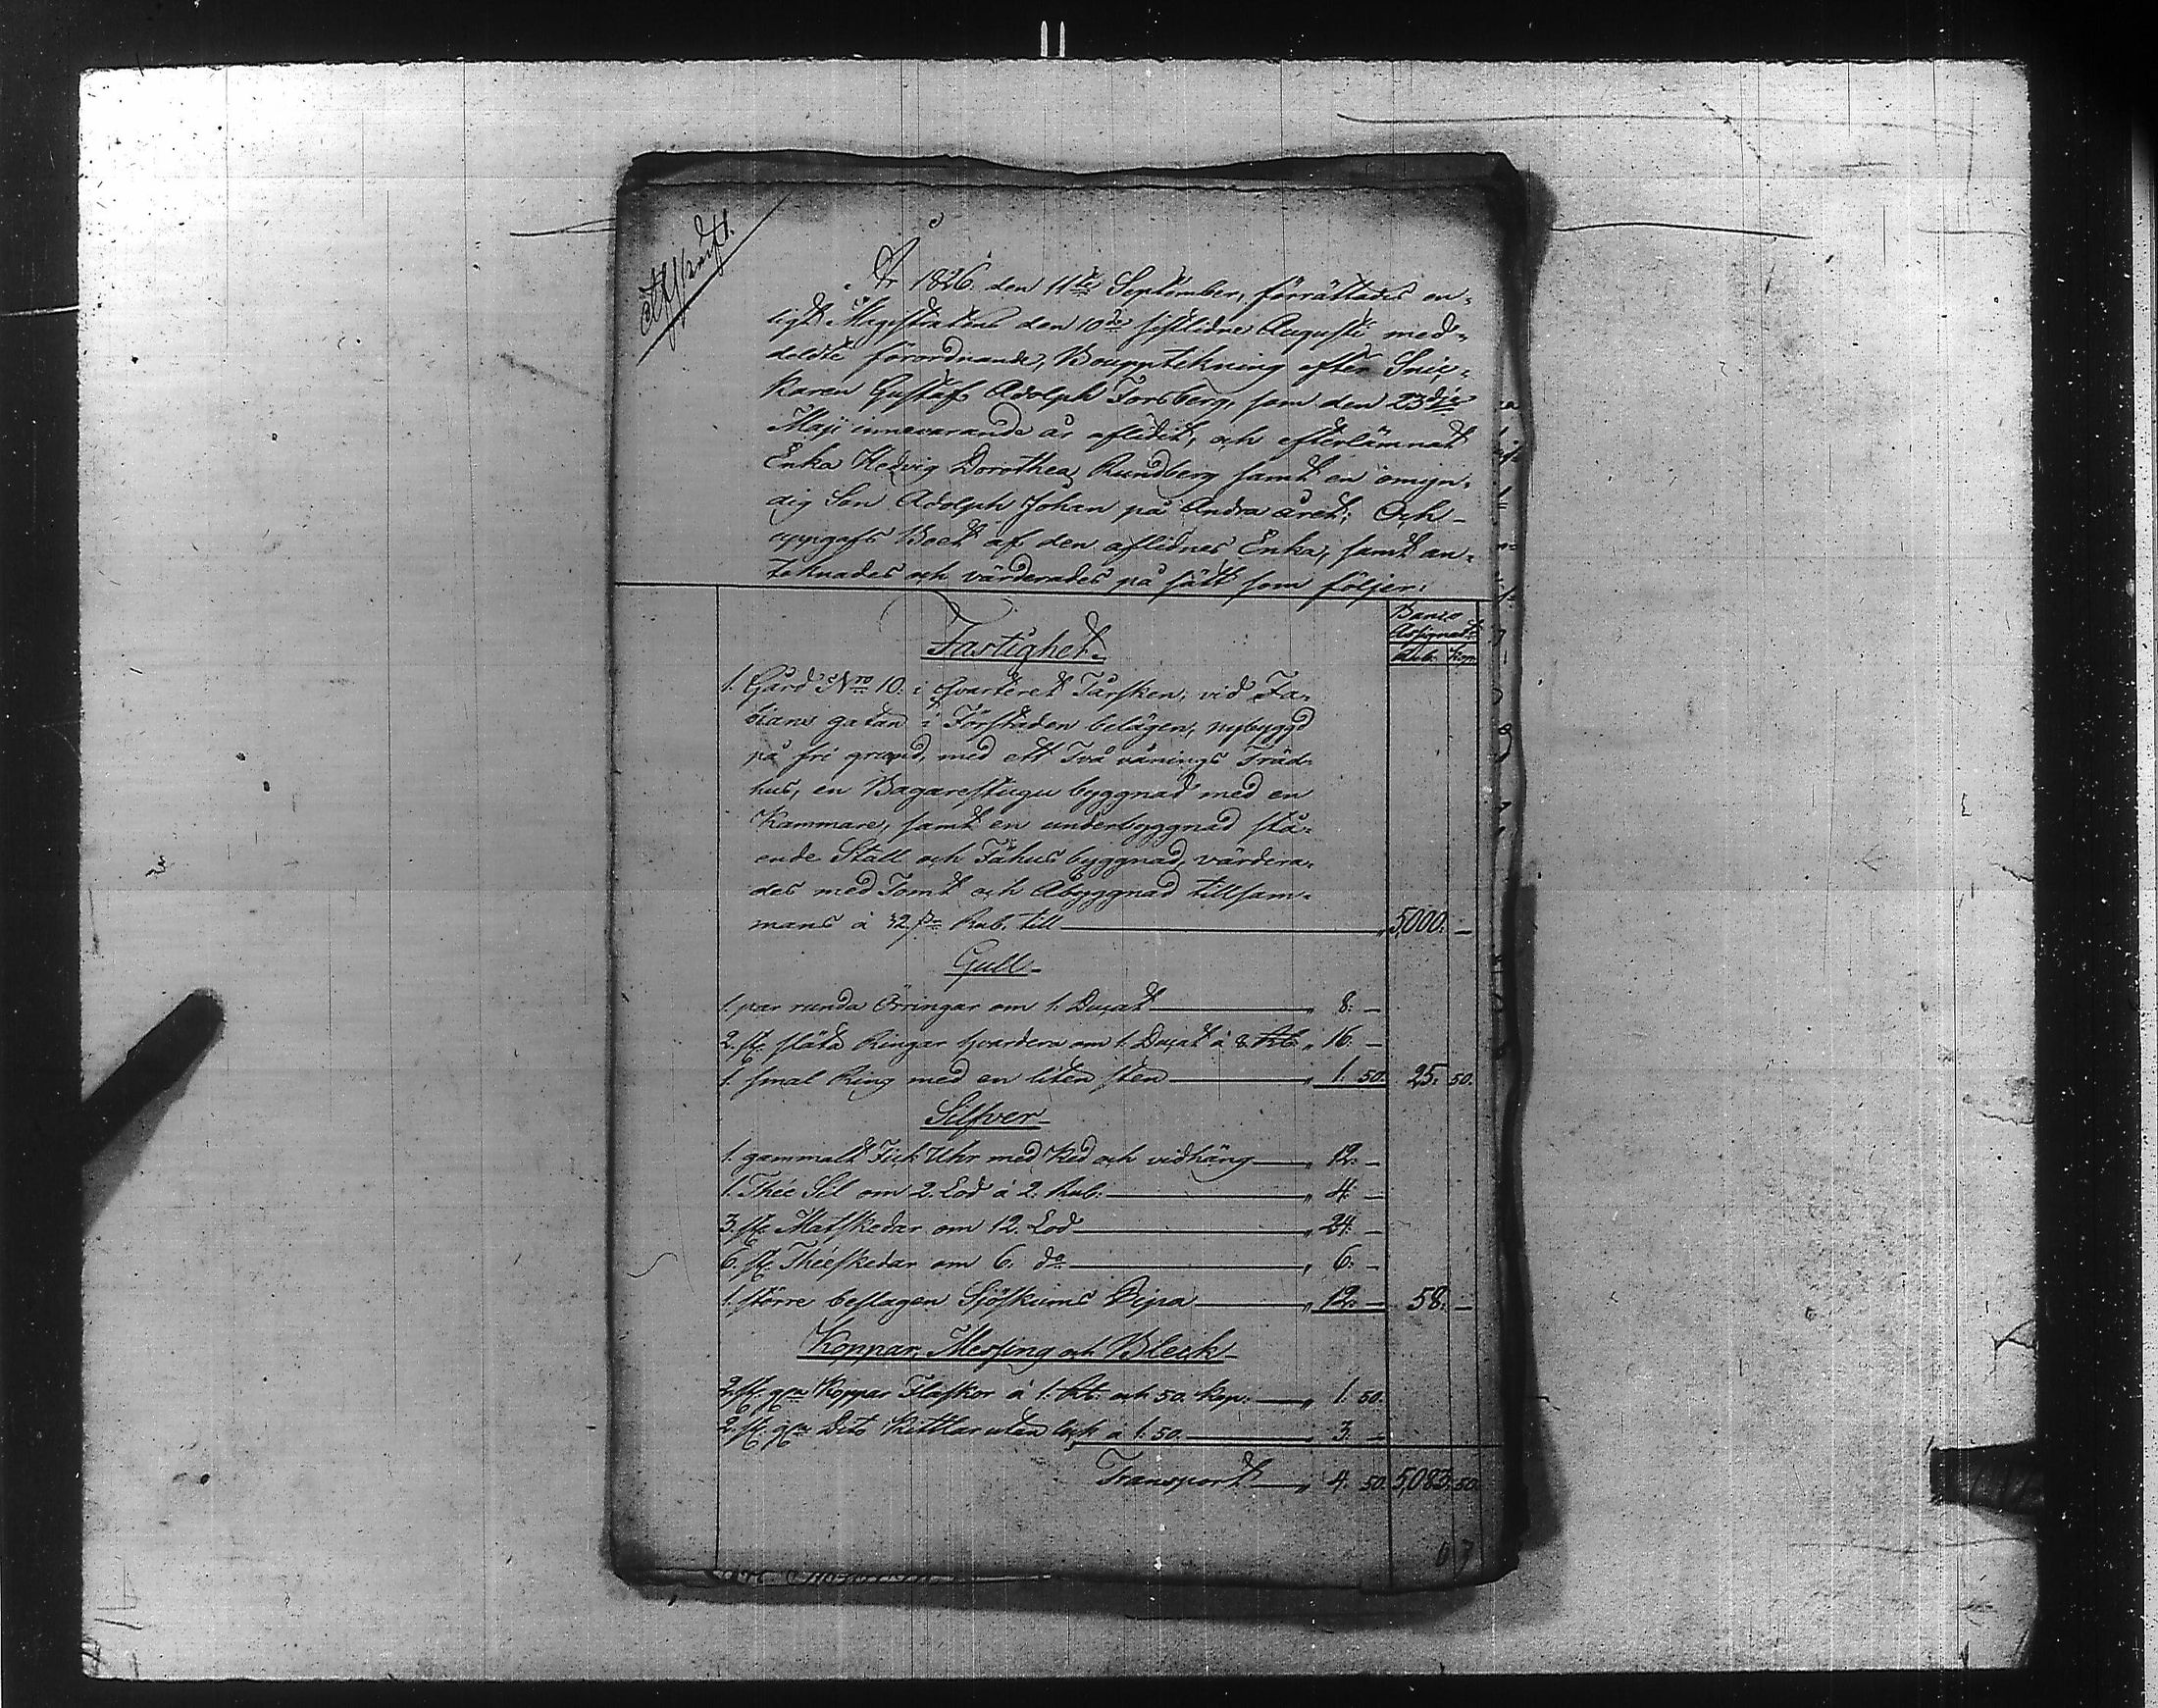 Afskrift.
År 1826 den 11te September, förrättades en-
ligt Magistratens den 10de sistlidne Augusti med-
deldte förordnande, Bouppteckning efter Snic-
karen Gustaf Adolph Forsberg, som den 23dje
Maji innevarande år aflidit, och efterlämnat
Enka Hedvig Dorothea Rundberg samt en omyn-
dig Son Adolph Johan på Andra året; Och
uppgafs Boet af den aflidnes Enka, samt an-
teknades och värderades på sätt som följer:
Banco
Assignat:
Rub. Kop.
Fastighet.
1. Gård Nro 10. i Qvarteret Tårsken, vid Fa-
bians gatan i Förstaden belägen, nybyggd
på fri grund, med ett Två vånings Träd-
hus, en Bagarestugu byggnad med en
Kammare, samt en underbyggnad stå-
ende Stall och Fähus byggnad, värdera-
des med Tomt och Åbyggnad tillsam-
mans à Rub. till 5,000. —
Gull
1. par runda Örringar om 1. Ducat " 8. —
2. st. släta Ringar hvardera om 1. Ducat à 8 Rb. " 16. —
1. smal Ring med en liten sten " 1. 50. 25. 50.
Silfver
1. gammalt Fick Uhr med Ked och vidhäng " 12. —
1. Thée Sil om 2. Lod à 2. Rub. " 4. —
3. st. Matskedar om 12. Lod " 24. —
6. st. Théeskedar om 6. do " 6. —
1. större beslagen Sjöskums Pipa " 12. — 58. —
Koppar, Messing och Bleck
2. st. gla Koppar Flaskor à 1. Rb. och 50. Kop. " 1. 50.
2. st. gla Dito Kittlar utan lock à 1. 50. " 3. —
Transport " 4. 50. 5,083. 50.